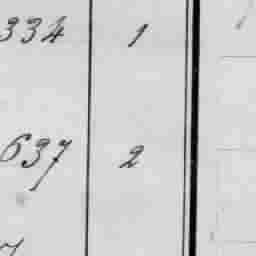 334 1
637 2